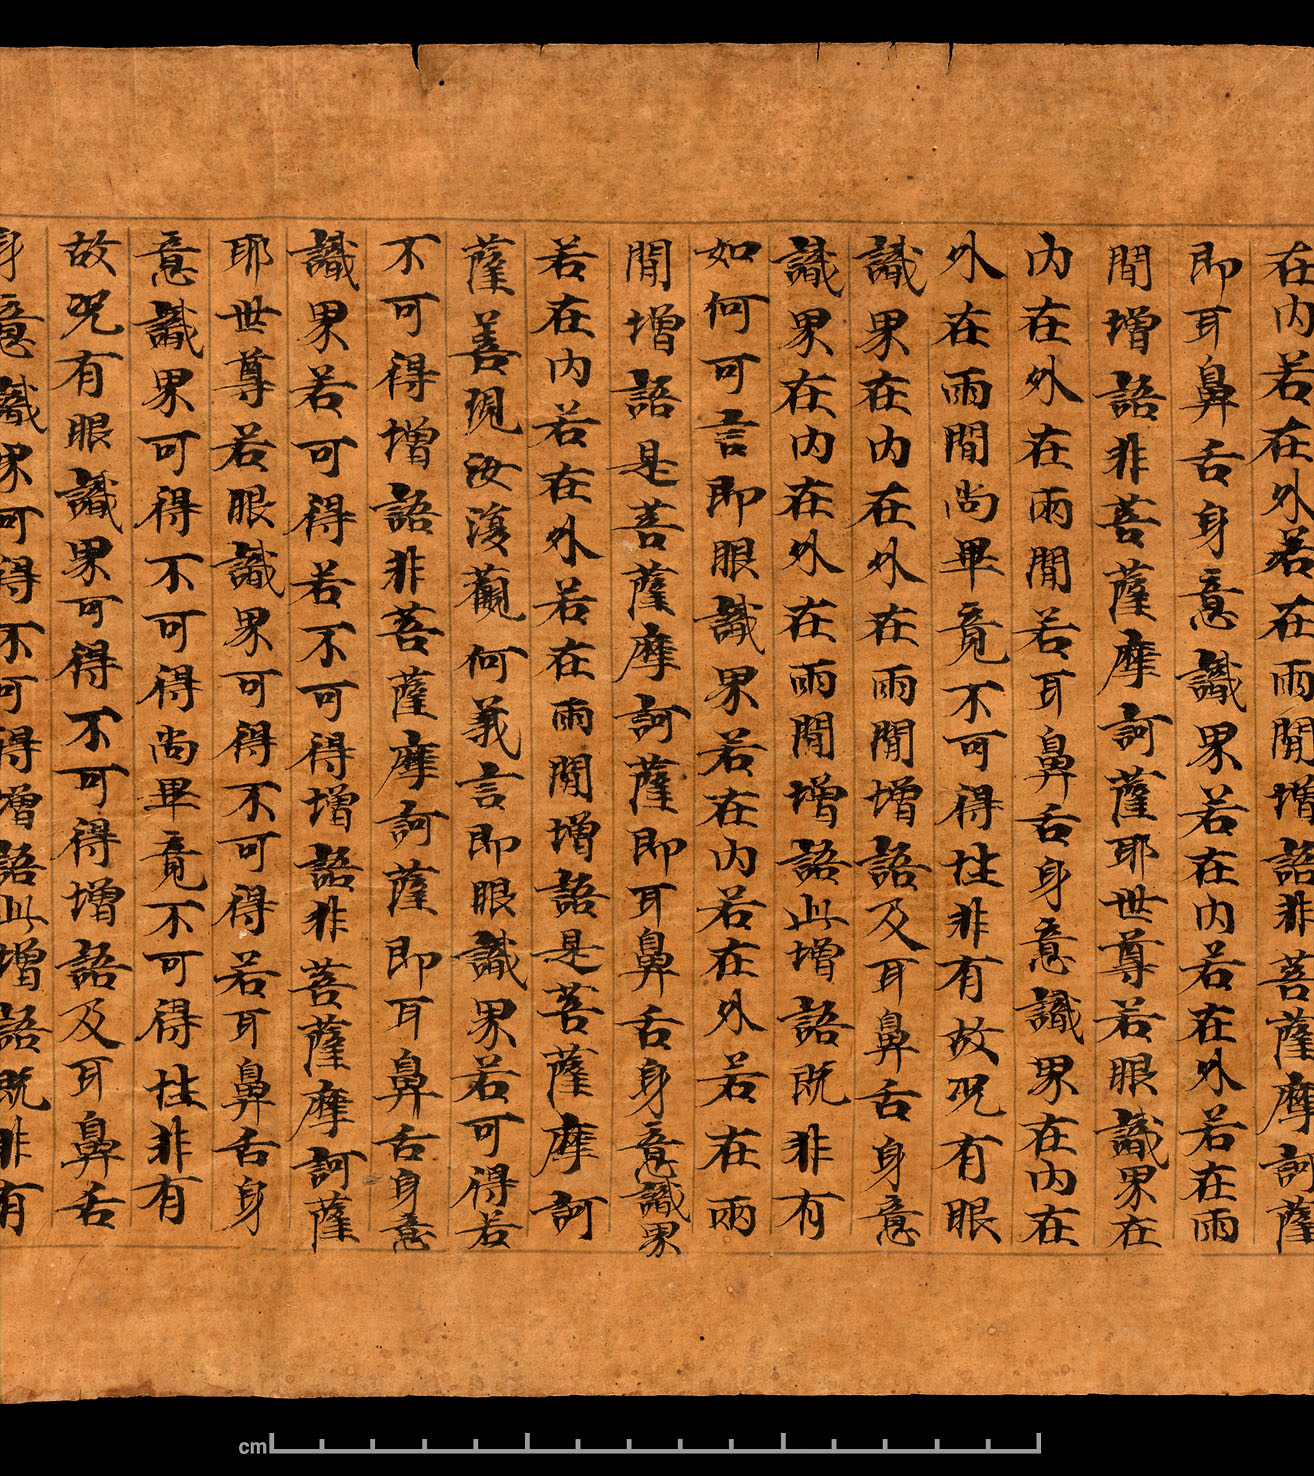 在内若在外若在兩閒增語非菩薩摩訶薩
即耳鼻舌身意識界若在内若在外若在兩
閒增語非菩薩摩訶薩耶世尊若眼識界在
内在外在兩閒若耳鼻舌身意識界在内在
外在兩閒尚畢竟不可得性非有故况有眼
識界在内在外在兩閒增語及耳鼻舌身意
識界在内在外在兩閒增語此增語既非有
如何可言即眼識界若在内若在外若在兩
閒增語是菩薩摩訶薩即耳鼻舌身意識界
若在内若在外若在兩閒增語是菩薩摩訶
薩善現汝復觀何義言即眼識界若可得若
不可得增語非菩薩摩訶薩即耳鼻舌身意
識界若可得若不可得增語非菩薩摩訶薩
耶世尊若眼識界可得不可得若耳鼻舌身
意識界可得不可得尚畢竟不可得性非有
故况有眼識界可得不可得增語及耳鼻舌
身意識界可得不可得增語此增語既非有